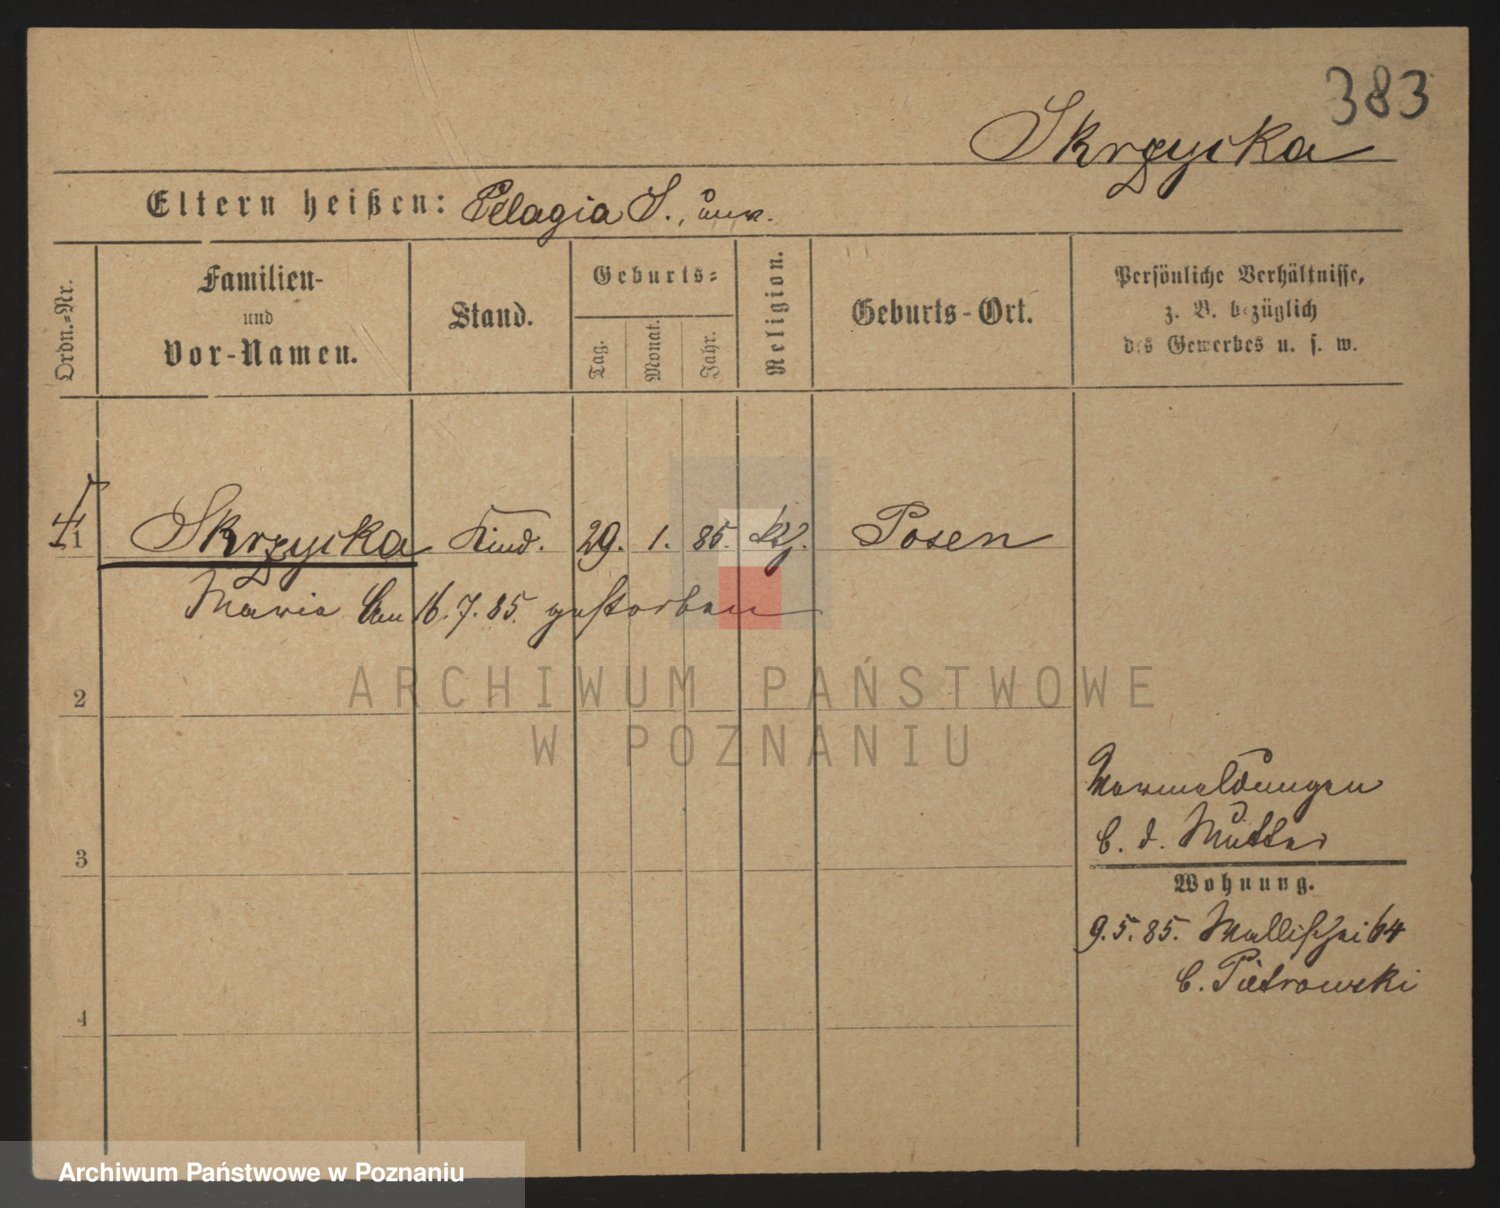 383
Skrzycka
Eltern heißen: Pelagia S.,
Ordn.-Nr.
Familien-
und
Vor-Namen.
Stand.
Geburts-
Tag.
Monat.
Jahr.
Religion.
Geburts-Ort.
Persönliche Verhältnisse,
z. B. bezüglich
des Gewerbes u. s. w.
1 Skrzycka Kind. 29. 1. 85. Posen
Maria am 16.7.85. gestorben
ARCHIWUM PAŃSTWOWE
W POZNANIU
2
3
4
Normeldungen
b. d. Mutter
Wohnung.
9.5.85. Wallischei 64
b. Pietrowski
Archiwum Państwowe w Poznaniu